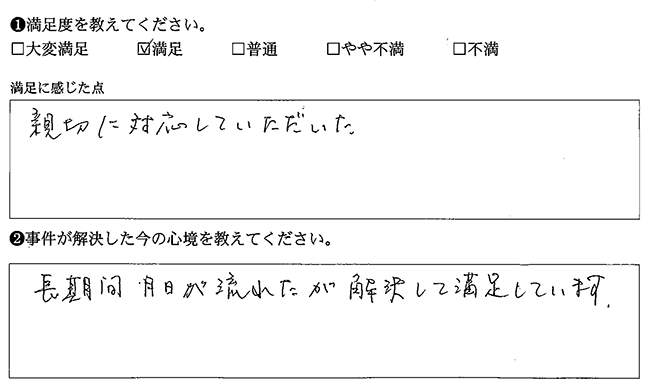 ❶満足度を教えてください。
□大変満足 ☑満足 □普通 □やや不満 □不満
満足に感じた点
親切に対応していただいた
❷事件が解決した今の心境を教えてください。
長期間月日が流れたが解決して満足しています.